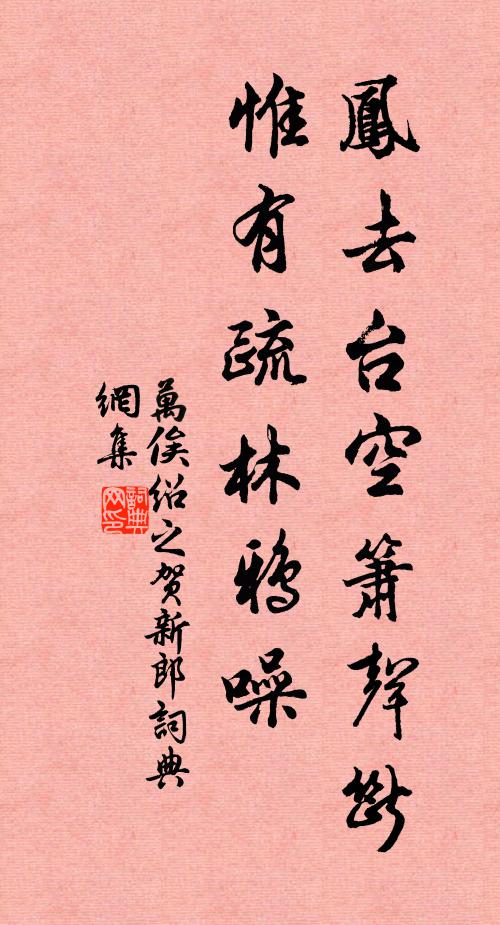 鳳去台空簫聲斷
惟有疏林鴉噪
萬俟紹之賀新郎詞典
網集
詞典
网印